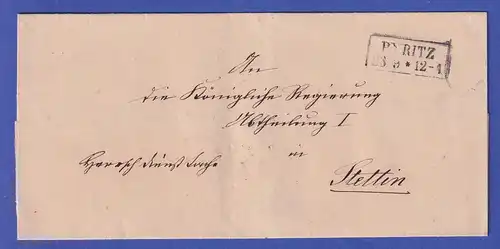 PYRITZ
* 12-4
An
die Königliche Regierung
Abtheilung I
in
Stettin
Herrsch dienst Sache